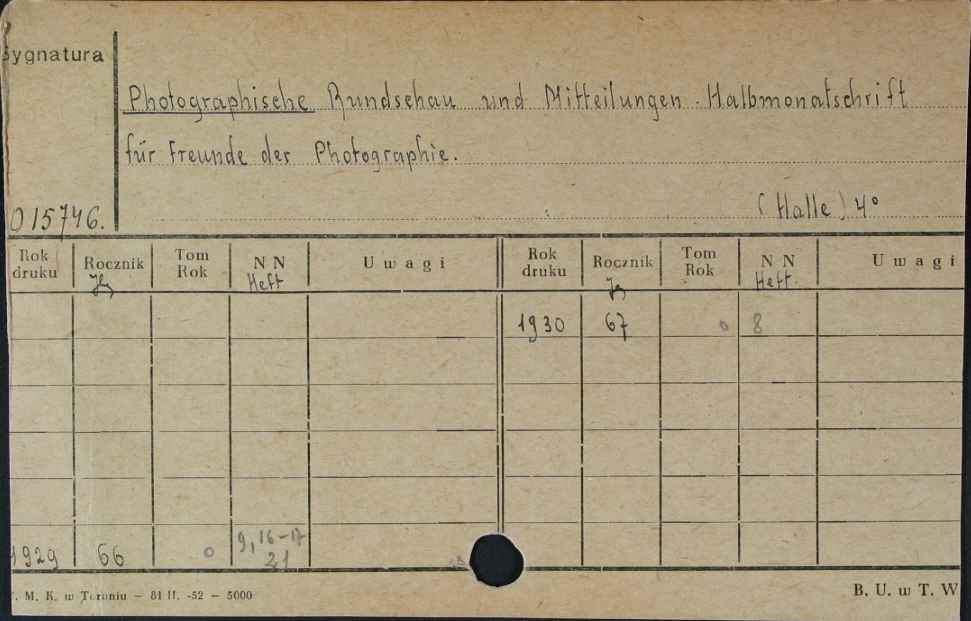 Sygnatura
Photographische Rundschau und Mitteilungen. Halbmonatschrift
für Freunde der Photographie.
015746.
(Halle) 4°
Rok druku Rocznik Tom Rok N N Uwagi Rok druku Rocznik Tom Rok N N Uwagi
Jg Heft Jg Heft.
1930 67 0 8
1929 66 0 9, 16-17
21
. M. K. w Toruniu — 81 II. -52 — 5000
B. U. w T. W